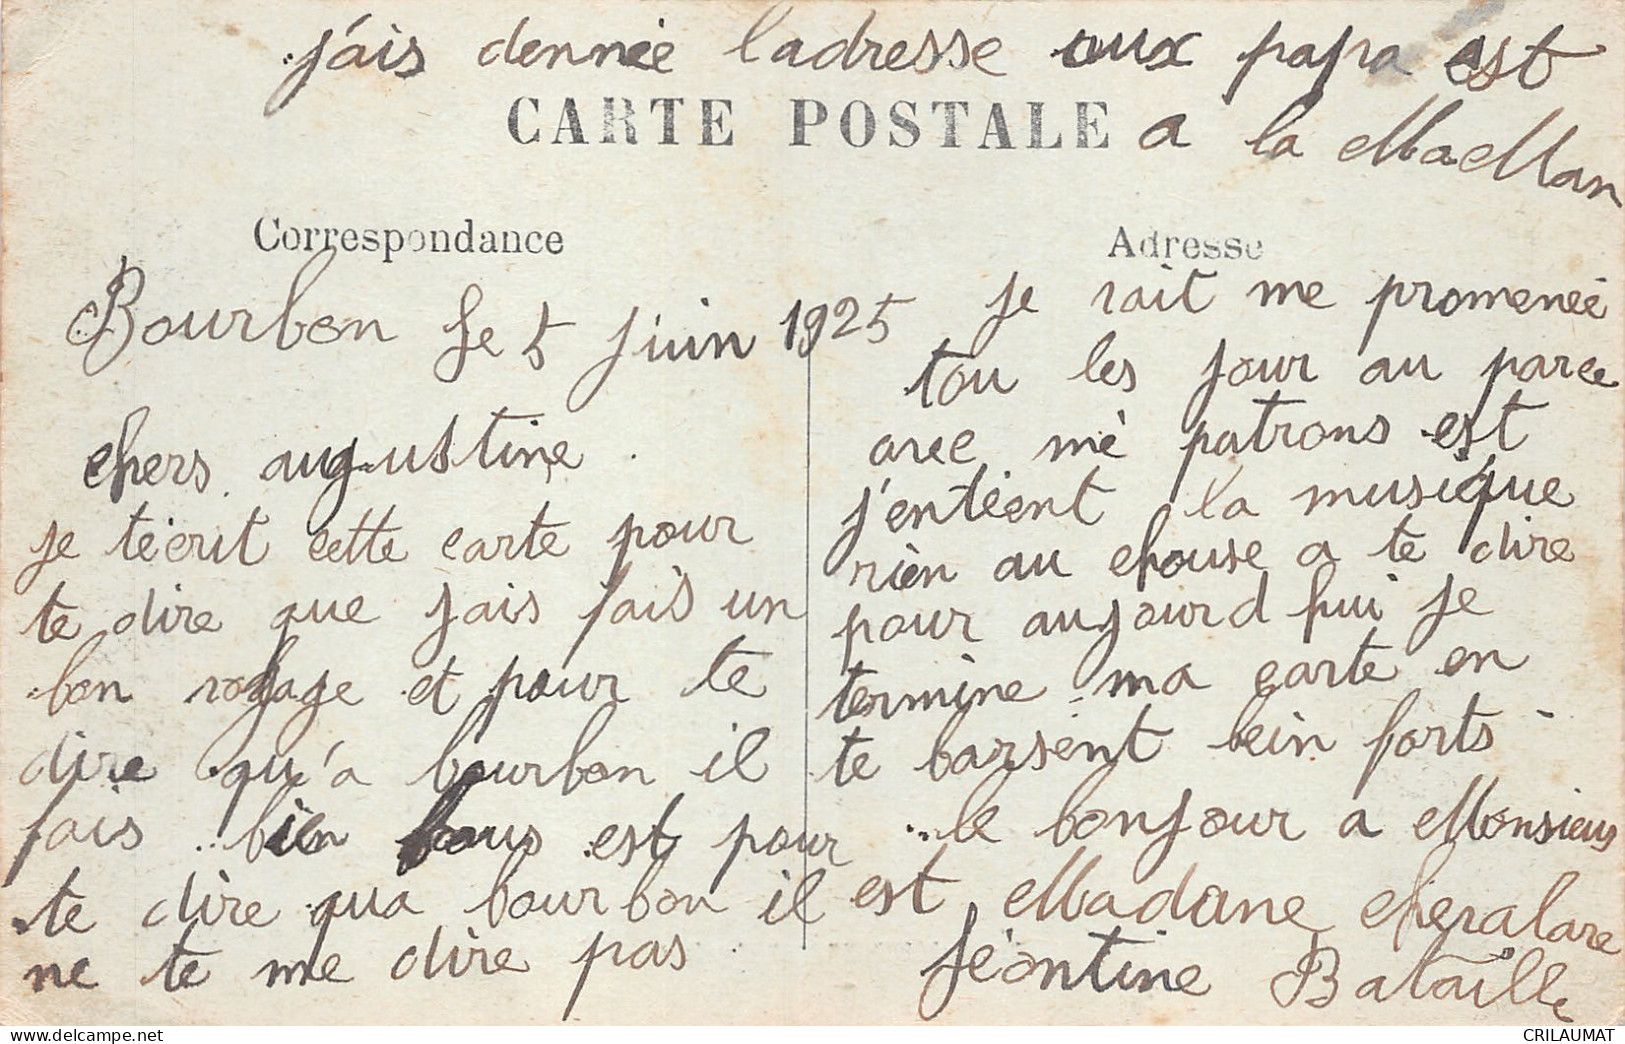 j'ais dennée l'adresse aux papa est
a la MaMan
CARTE POSTALE
Correspondance
Bourbon Le 5 Juin 1925
chers augustine
je técrit cette carte pour
te dire que jais fais un
bon voyage et pour te
dire qu'a bourbon il
fais bien bous est pour
te dire qua bourbon il
ne te me dire pas
Adresse
Je vait me promeneé
tou les jour au parce
avec mè patrons est
j'enteent la musique
rien au chouse a te dire
pour aujourd hui je
termine ma carte en
te barsent bein forts
le bonjour a Monsieus
est Madame chevalare
Léontine Bataille
CRILAUMAT